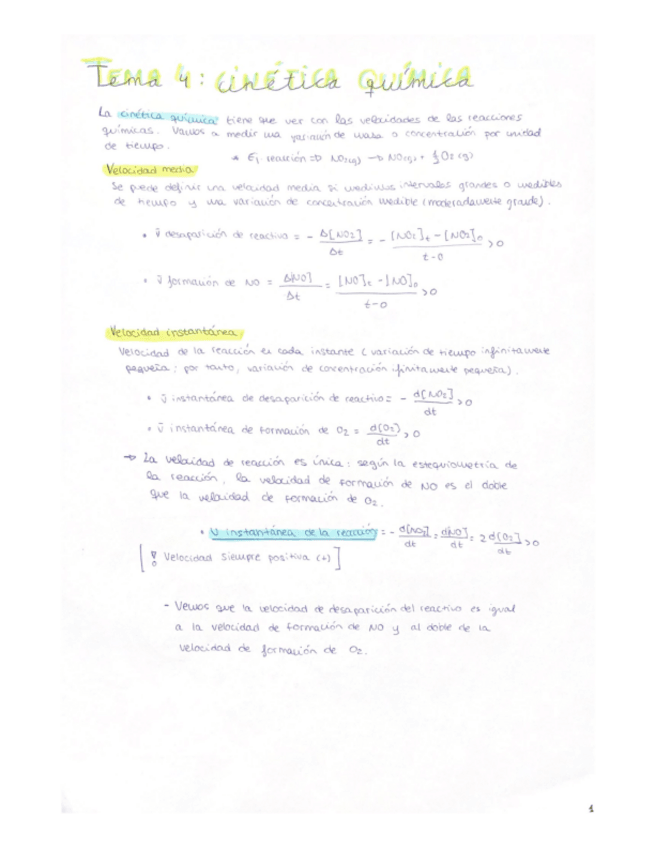 Tema 4: cinética química
La cinética química tiene que ver con las velocidades de las reacciones
químicas. Vamos a medir una variación de masa o concentración por unidad
de tiempo.
* Ej. reacción => NO2(g) → NO(g) + ½O2(g)
Velocidad media
Se puede definir una velocidad media si medimos intervalos grandes o medibles
de tiempo y una variación de concentración medible (moderadamente grande).
• v̄ desaparición de reactivo = - Δ[NO2]/Δt = - [NO2]t - [NO2]0 / t-0 > 0
• v̄ formación de NO = Δ[NO]/Δt = [NO]t - [NO]0 / t-0 > 0
Velocidad instantánea
Velocidad de la reacción en cada instante (variación de tiempo infinitamente
pequeña; por tanto, variación de concentración ifinitamente pequeña).
• v̄ instantánea de desaparición de reactivo = - d[NO2]/dt > 0
• v̄ instantánea de formación de O2 = d[O2]/dt > 0
→ La velocidad de reacción es única: según la estequiometría de
la reacción, la velocidad de formación de NO es el doble
que la velocidad de formación de O2.
• v instantánea de la reacción = - d[NO2]/dt = d[NO]/dt = 2 d[O2]/dt > 0
[ ! Velocidad siempre positiva (+) ]
- Vemos que la velocidad de desaparición del reactivo es igual
a la velocidad de formación de NO y al doble de la
velocidad de formación de O2.
1